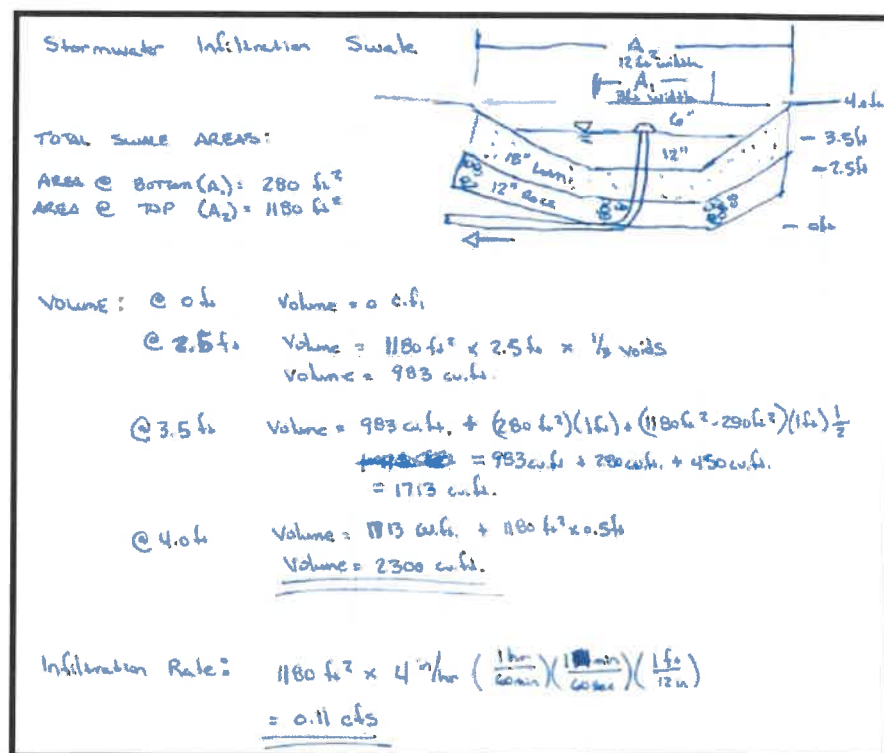 Stormwater Infiltration Swale
A2
12 ft width
A1
3 ft width
4.0 ft
6"
TOTAL SWALE AREAS:
3.5 ft
12"
18" Loam
2.5 ft
AREA @ BOTTOM (A1): 280 ft²
12" Rock
AREA @ TOP (A2) = 1180 ft²
0 ft
VOLUME: @ 0 ft Volume = 0 c.f.
@ 2.5 ft Volume = 1180 ft² x 2.5 ft x 1/3 voids
Volume = 983 cu.ft.
@ 3.5 ft Volume = 983 cu.ft. + (280 ft²)(1ft) + (1180 ft² - 280 ft²)(1ft) 1/2
= 983 cu.ft + 280 cu.ft. + 450 cu.ft.
= 1713 cu.ft.
@ 4.0 ft Volume = 1713 cu.ft. + 1180 ft² x 0.5 ft
Volume = 2300 cu.ft.
Infiltration Rate: 1180 ft² x 4 in/hr (1 hr/60 min)(1 min/60 sec)(1 ft/12 in)
= 0.11 cfs